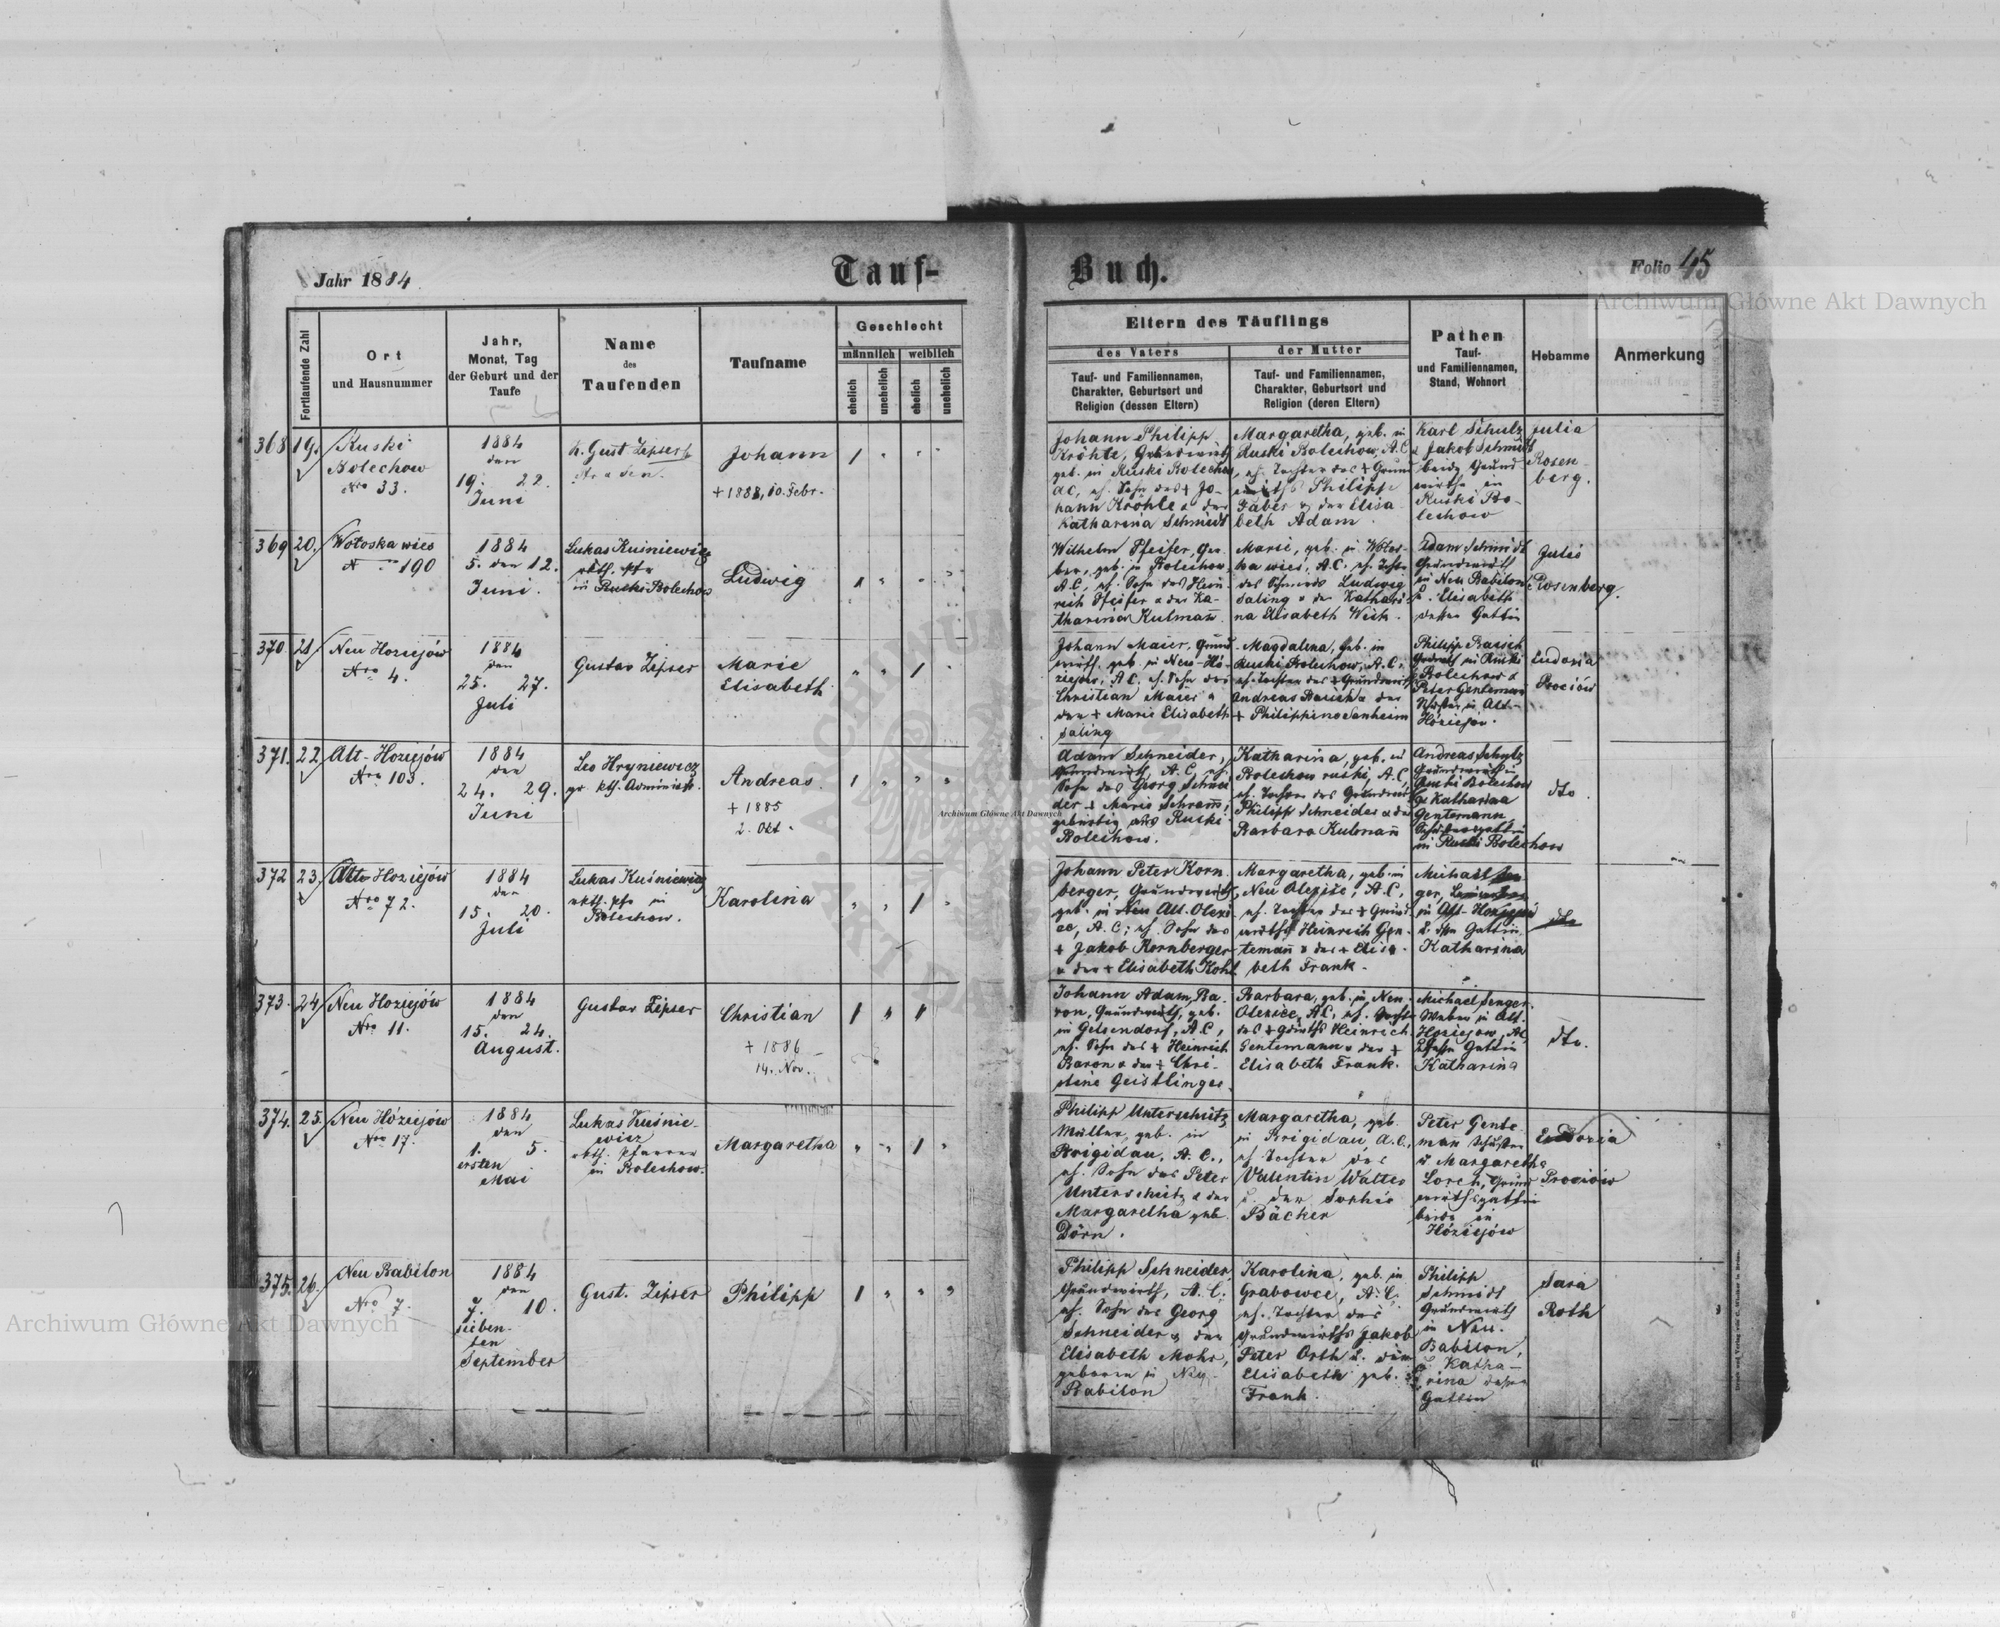 Jahr 1884
Tauf-
Buch.
Folio 45
Archiwum Główne Akt Dawnych
Fortlaufende Zahl
Ort
und Hausnummer
Jahr,
Monat, Tag
der Geburt und der
Taufe
Name
des
Taufenden
Taufname
Geschlecht
männlich
weiblich
ehelich
unehelich
ehelich
unehelich
Eltern des Täuflings
des Vaters
der Mutter
Tauf- und Familiennamen,
Charakter, Geburtsort und
Religion (dessen Eltern)
Tauf- und Familiennamen,
Charakter, Geburtsort und
Religion (deren Eltern)
Pathen
Tauf-
und Familiennamen,
Stand, Wohnort
Hebamme
Anmerkung
368 19.
Ruski
Bolechow
Nro 33.
1884
den
19. 22.
Juni
Gust Zipser
Johann
+ 1888, 10. Febr.
Johann Philipp
Kröhle, Grundwirth
geb. in Ruski Bolechow
AC, eh. Sohn des + Jo-
hann Kröhle u der
Katharina Schmidt
Margaretha, geb. in
Ruski Bolechow, A.C
eh. Tochter des + Grund
wirths Philipp
Faber u der Elisa-
beth Adam.
Karl Schulz
u Jakob Schmidt
beide Grund
wirthe in
Ruski Bo-
lechow
Julia
Rosen-
berg.
369 20.
Wołoska wies
N 190
1884
5. den 12.
Juni.
Lukas Kuśniewicz
rkth. Pfr
in Ruski Bolechow
Ludwig
Wilhelm Pfeifer, Ger-
ber, geb. in Bolechow,
A.C, eh. Sohn des Hein
rich Pfeifer u der Ka-
tharina Kulmañ.
Marie, geb. in Wolos-
ka wies, A.C. eh. Tochter
des Schmieds Ludwig
Saling u der Kathari-
na Elisabeth Weik.
Adam Schmidt
Grundwirth
in Neu Babilon
u. Elisabeth
dessen Gattin
Julie
Rosenberg.
370 21
Neu Hoziejów
Nro 4.
1884
den
25. 27.
Juli
Gustav Zipser
Marie
Elisabeth
Johann Maier, Grund
wirth, geb. in Neu-Ho-
ziejow, A.C. eh. Sohn des
Christian Maier u
der + Marie Elisabeth
Saling
Magdalena, geb. in
Ruski Bolechow, A.C.
eh. Tochter des + Grundwirths
Andreas Rauschu der
+ Philippine Sanheim
Philipp Rausch
Grdwrth in Ruski
Bolechow u
Peter Gentemann
Schuster in Alt-
Hóziejow.
Eudoxia
Prociów
371. 22
Alt-Hoziejów
Nro 103.
1884
den
24. 29.
Juni
Leo Hryniewicz
gr. kth. Administr.
Andreas
+ 1885
2. Okt.
Adam Schneider,
Grundwirth, A.C, eh.
Sohn des Georg Schnei
der + Marie Schramm,
gebürtig aus Ruski
Bolechow.
Katharina, geb. in
Bolechow ruski, A.C,
eh. Tochter des Grundwirth
Philipp Schneider u der
Barbara Kulmañ
Andreas Schulz
Grundwirth in
Ruski Bolechow
u Katharina
Gentemann,
in Ruski Bolechow
dto.
372 23.
Alt-Hoziejów
Nro 72.
1884
den
15. 20.
Juli
Lukas Kuśniewicz
rkth. Pfr in
Bolechow.
Karolina
Johann Peter Korn
berger, Grundwirth,
geb. in Neu Alt-Olexi
ce, A.C; eh. Sohn des
+ Jakob Kornberger
u der + Elisabeth Kohl
Margaretha, geb. in
Neu Olexice, A.C,
eh. Tochter des + Grund
wirths Heinrich Gen-
temañ u der + Elisa-
beth Frank.
Michael Sen-
ger,
in Alt-Hoziejow
u. dssn Gattin
Katharina
dto
373. 24
Neu Hoziejów
Nro 11.
1884
den
15. 24.
August.
Gustav Zipser
Christian
+ 1886
14. Nov.
Johann Adam Ba-
ron, Grundwirth, geb.
in Gelsendorf, A.C,
eh. Sohn des + Heinrich
Baron u der + Chri-
stine Geistlinger
Barbara, geb. in Neu
Olexice, AC, eh. Tochter
des + Gdwrths Heinrich
Gentemann u der +
Elisabeth Frank.
Michael Senger
Weber in Alt.
Hoziejow, AC
dessen Gattin
Katharina
dto.
374. 25.
Neu Hóziejów
Nro 17.
1884
den
1. 5.
ersten
Mai
Lukas Kuśnie-
wicz
rkth. Pfarrer
in Bolechow.
Margaretha
Philipp Unterschütz
Müller, geb. in
Brigidau, A.C.,
eh. Sohn des Peter
Unterschütz u der
Margaretha geb.
Dörn.
Margaretha, geb.
in Brigidau, A.C.,
eh Tochter des
Valentin Walter
u. der Sophie
Bäcker
Peter Gente-
man Schuster
u. Margaretha
Lorch, Grund
wirthsgattin
beide in
Hóziejów
Eudoxia
Prociów
375. 26.
Neu Babilon
Nro 7.
1884
den
7. 10.
sieben-
ten
September
Gust. Zipser
Philipp
Philipp Schneider
Grundwirth, A.C.
eh. Sohn des Georg
Schneider u der
Elisabeth Mohr,
geboren in Neu-
Babilon
Karolina, geb. in
Grabowce, A.C.
eh. Tochter des
Grundwirths Jakob
Peter Orth u. der
Elisabeth geb.
Frank.
Philipp
Schmidt
Grundwirth
in Neu-
Babilon,
u. Katha-
rina dessen
Gattin
Sara
Roth
Archiwum Główne Akt Dawnych
Archiwum Główne Akt Dawnych